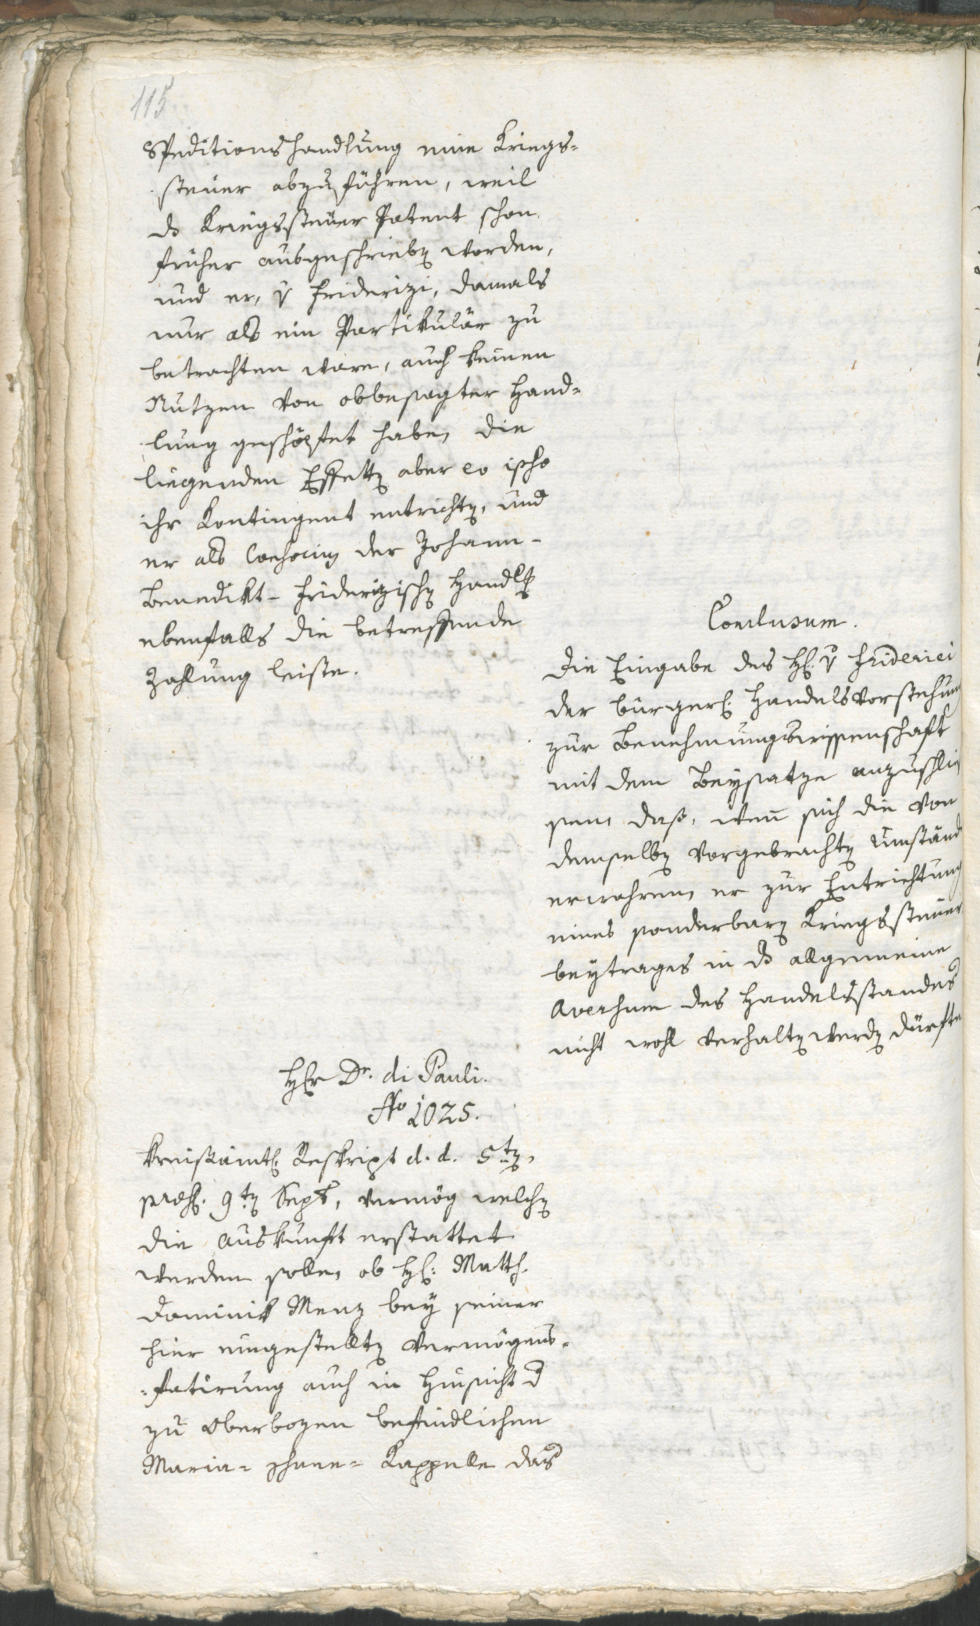 115
Speditionshandlung eine Kriegs=
steuer abzuführen, weil
ds Kriegssteuer Patent schon
früher ausgeschrieben worden,
und er, v Friderizi, damals
nur als ein Partikulär zu
betrachten ware, auch keinen
Nutzen von obbesagter Hand=
lung geschöpfet habe, die
liegenden Effekten aber eo ipso
ihr Kontingent entrichten, und
er als Consocius der Johann-
Benedikt-Friderizischen Handlg
ebenfalls die betreffende
Zahlung leiste.
Conclusum.
Die Eingabe des H: v Friderici
der bürgerl: Handelsvorstehung
zur Benehmungswissenschaft
mit dem Beysatze anzuschlies
sen, daß, wen̄ sich die von
demselben vorgebrachten Umständ
erwahren, er zur Entrichtung
eines sonderbaren Kriegssteuer
beytrages in ds allgemeine
Aversum des Handelsstandes
nicht wohl verhalten werden dürfte
Hr Dr. di Pauli.
No 1025.
Kreisämtl: Reskript d. d. 5ten,
præs. 9ten Sept, vermög welchen
die Auskunft erstattet
werden solle, ob H: Matth.
Dominik Menz bey seiner
hier eingestellten Vermögens=
=fatirung auch in Hinsicht d
zu Oberbozen befindlichen
Maria= Kappelle das